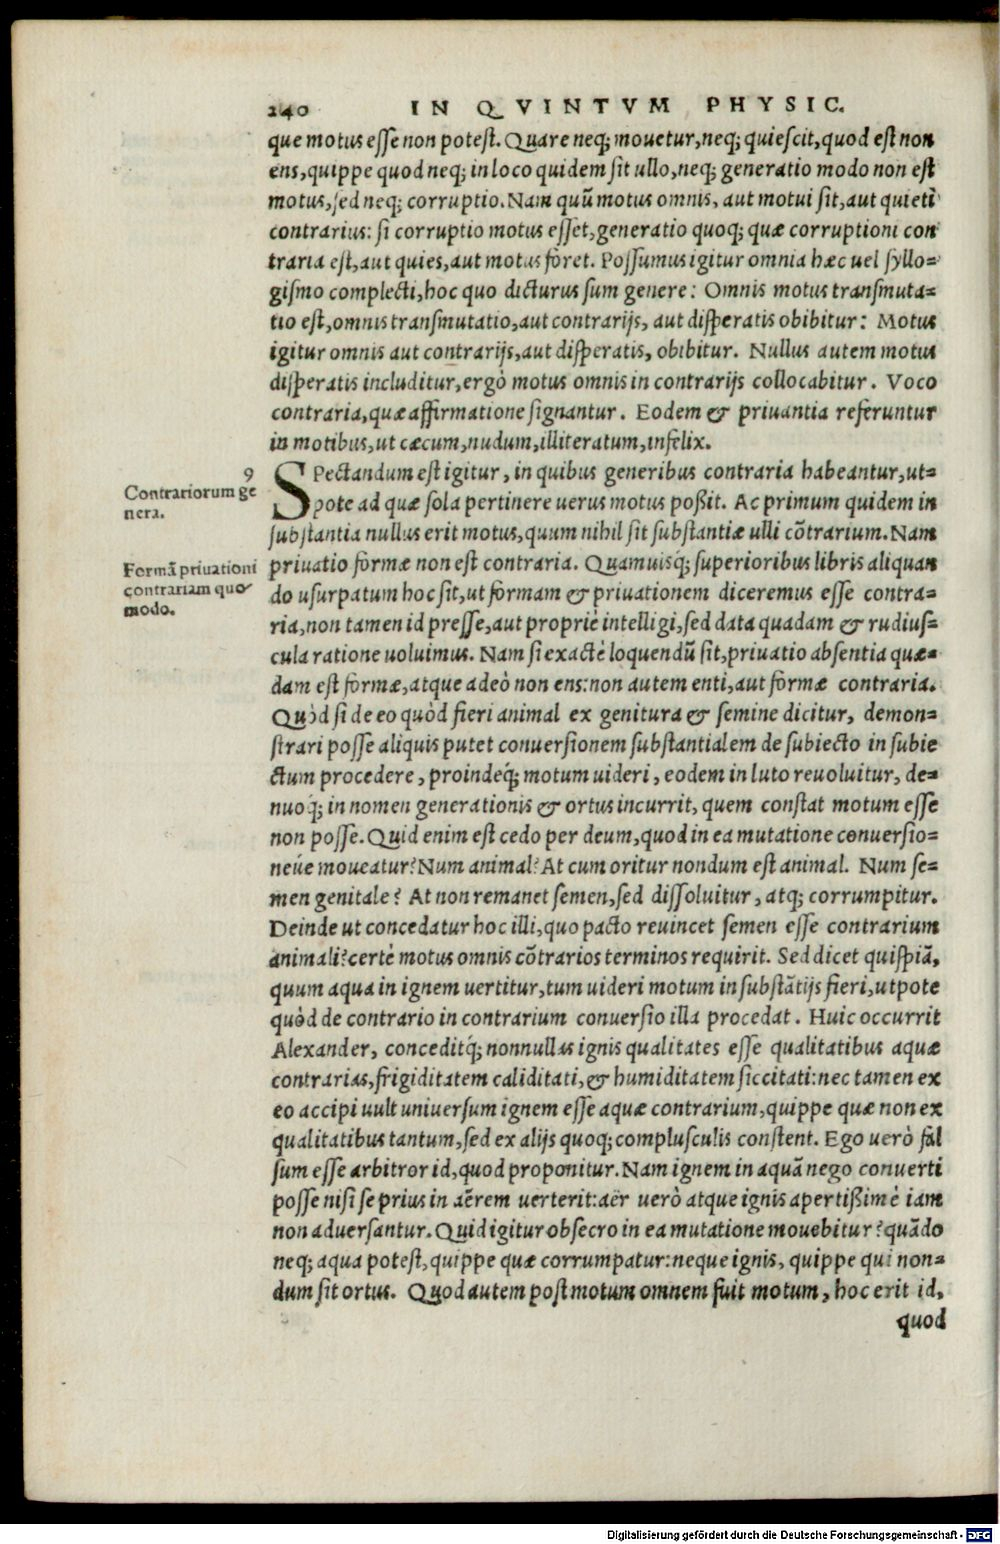 240 IN QVINTVM PHYSIC.
que motus esse non potest. Quare neq; mouetur, neq; quiescit, quod est non
ens, quippe quod neq; in loco quidem sit ullo, neq; generatio modo non est
motus, sed neq; corruptio. Nam quū motus omnis, aut motui sit, aut quieti
contrarius: si corruptio motus esset, generatio quoq; quæ corruptioni con
traria est, aut quies, aut motus foret. Possumus igitur omnia hæc uel syllo=
gismo complecti, hoc quo dicturus sum genere: Omnis motus transmuta=
tio est, omnis transmutatio, aut contrarijs, aut disperatis obibitur: Motus
igitur omnis aut contrarijs, aut disperatis, obibitur. Nullus autem motus
disperatis includitur, ergò motus omnis in contrarijs collocabitur. Voco
contraria, quæ affirmatione signantur. Eodem & priuantia referuntur
in motibus, ut cæcum, nudum, illiteratum, infelix.
9
Contrariorum ge
nera.
SPectandum est igitur, in quibus generibus contraria habeantur, ut=
pote ad quæ sola pertinere uerus motus poßit. Ac primum quidem in
substantia nullus erit motus, quum nihil sit substantiæ ulli cōtrarium. Nam
Formā priuationi
contrariam quo
modo.
priuatio formæ non est contraria. Quamuisq́; superioribus libris aliquan
do usurpatum hoc sit, ut formam & priuationem diceremus esse contra=
ria, non tamen id presse, aut propriè intelligi, sed data quadam & rudius=
cula ratione uoluimus. Nam si exactè loquendū sit, priuatio absentia quæ=
dam est formæ, atque adeò non ens: non autem enti, aut formæ contraria.
Quòd si de eo quòd fieri animal ex genitura & semine dicitur, demon=
strari posse aliquis putet conuersionem substantialem de subiecto in subie
ctum procedere, proindeq́; motum uideri, eodem in luto reuoluitur, de=
nuoq́; in nomen generationis & ortus incurrit, quem constat motum esse
non posse. Quid enim est cedo per deum, quod in ea mutatione conuersio=
neúe moueatur? Num animal? At cum oritur nondum est animal. Num se=
men genitale? At non remanet semen, sed dissoluitur, atq; corrumpitur.
Deinde ut concedatur hoc illi, quo pacto reuincet semen esse contrarium
animali? certè motus omnis cōtrarios terminos requirit. Sed dicet quispiā,
quum aqua in ignem uertitur, tum uideri motum in substātijs fieri, utpote
quòd de contrario in contrarium conuersio illa procedat. Huic occurrit
Alexander, conceditq́; nonnullas ignis qualitates esse qualitatibus aquæ
contrarias, frigiditatem caliditati, & humiditatem siccitati: nec tamen ex
eo accipi uult uniuersum ignem esse aquæ contrarium, quippe quæ non ex
qualitatibus tantum, sed ex alijs quoq; complusculis constent. Ego uerò fal
sum esse arbitror id, quod proponitur. Nam ignem in aquā nego conuerti
posse nisi se prius in aërem uerterit: aër uerò atque ignis apertißimè iam
non aduersantur. Quid igitur obsecro in ea mutatione mouebitur? quādo
neq; aqua potest, quippe quæ corrumpatur: neque ignis, quippe qui non=
dum sit ortus. Quod autem post motum omnem fuit motum, hoc erit id,
quod
Digitalisierung gefördert durch die Deutsche Forschungsgemeinschaft - DFG